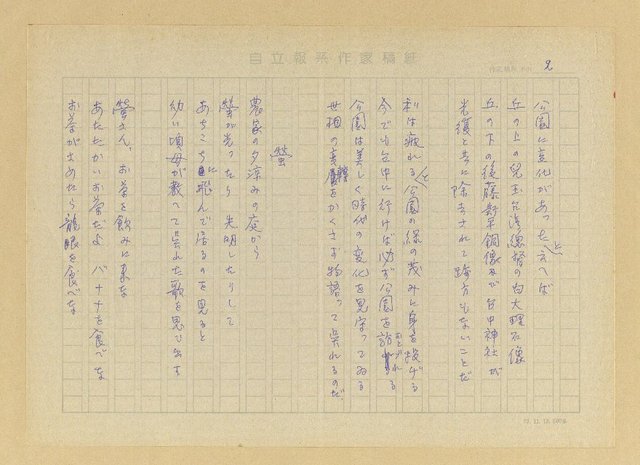 自立報系作家稿紙
2
公園に変化があったと言へば
丘の上の児玉源太郎総督の白大理石像
丘の下の後藤新平銅像及び台中神社が
光復と共に除去されて跡方もないことだ
私は疲れると公園の緑の茂みに身を投げる
今でも台中に行けば必ず公園を訪れる
公園は美しく時代の変化を見守ってゐる
世相の をかくさず物語って呉れるのだ
螢
農家の夕涼みの庭から
螢が光ったら 光明したりして
あちこちに飛んで居るのを見ると
幼い頃母が教へて呉れた歌を思ひ出す
螢さん、お茶を飲みに来な
あたたかいお茶だよ バナナを食べな
お茶がさめたら龍眼を食べな